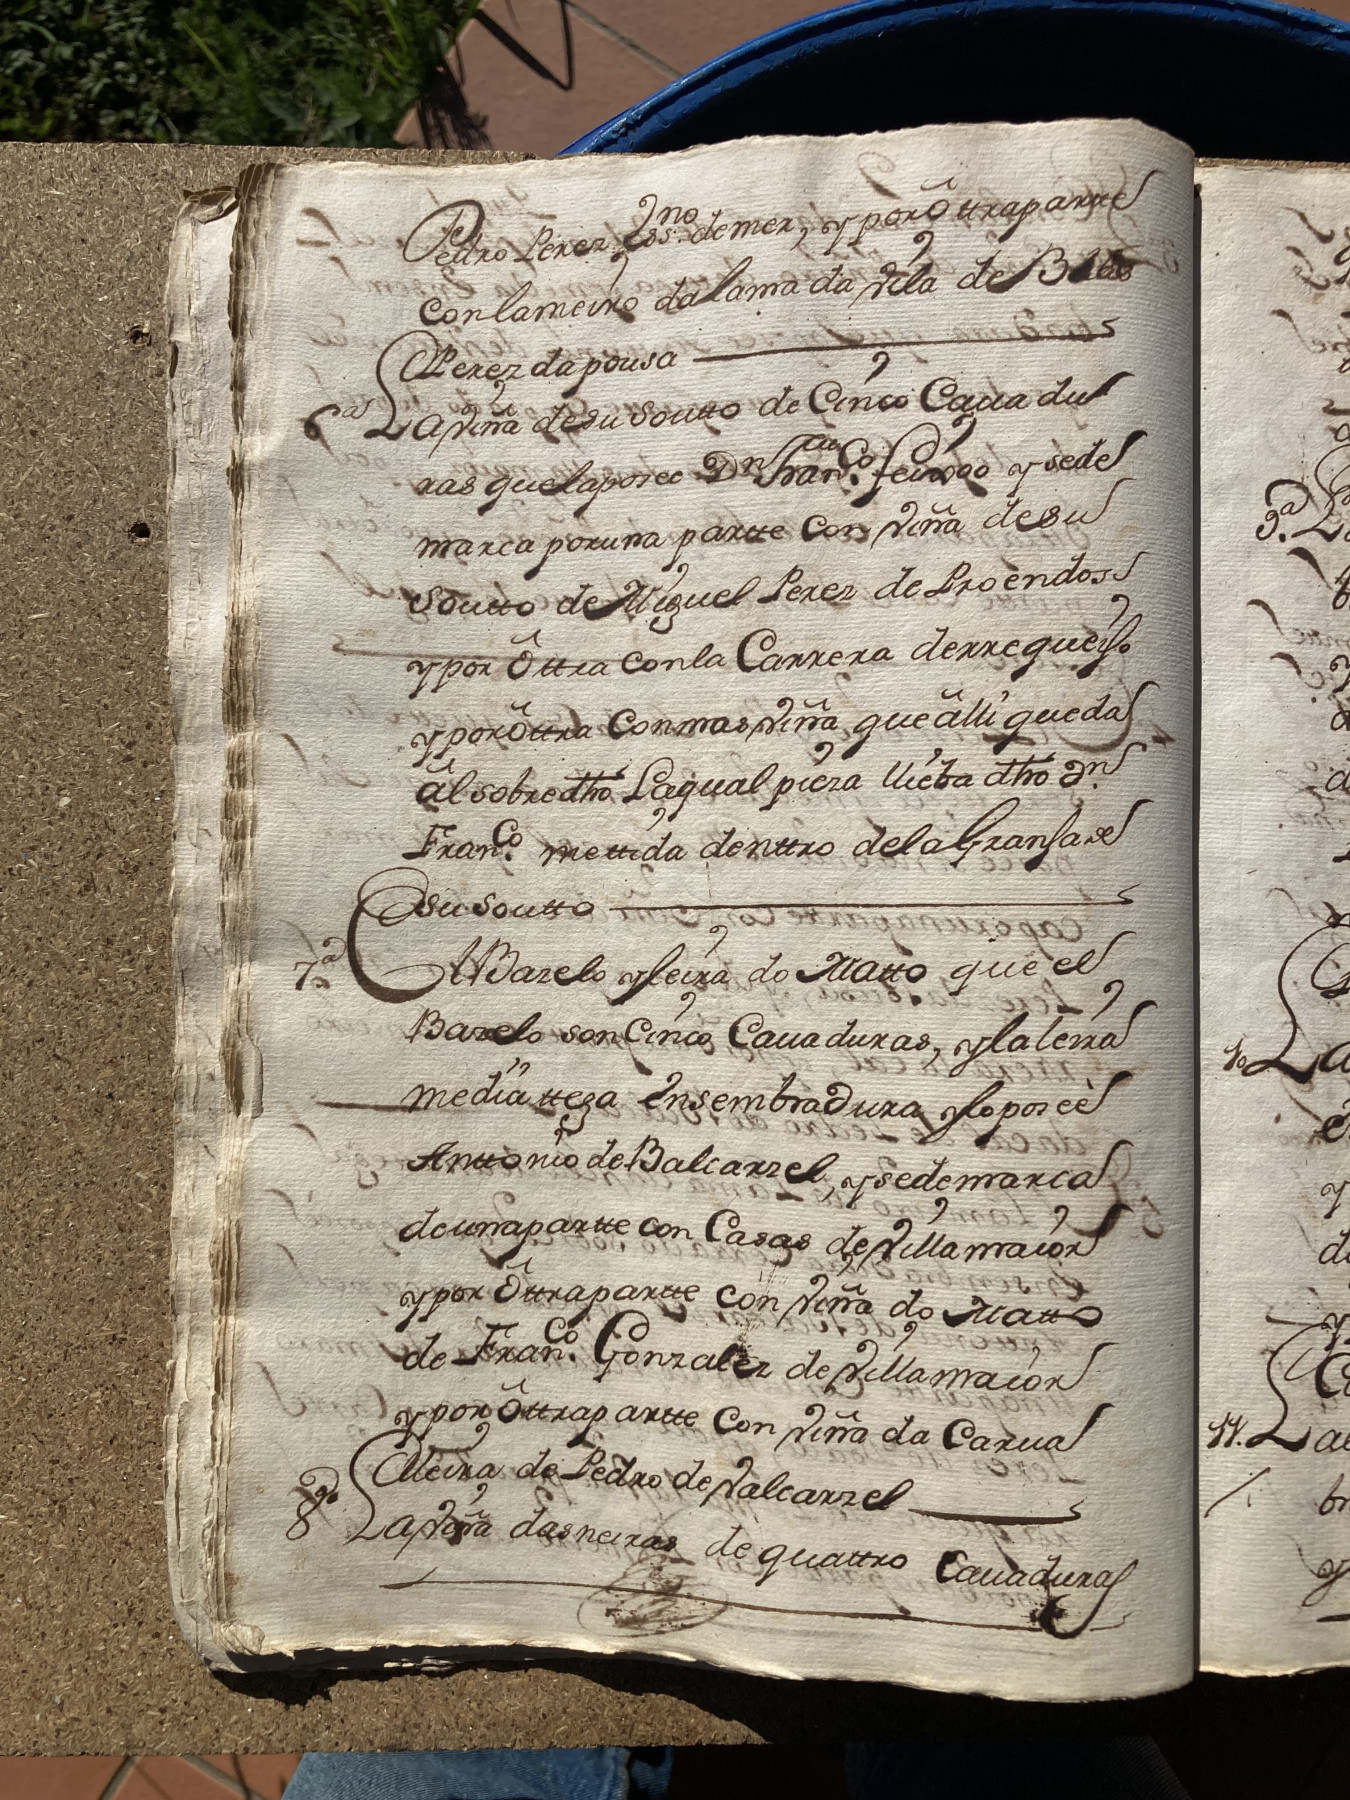 Pedro Perez Ess.no de mer, y por ôttra partte
con lameiro da lama da Vila de Blas
Perez da pousa
6.as La Viña de su soutto de Cinco Cauadu
ras que la posee Dn Fran.co feixoo y sede
marca por una partte con viña de su
soutto de Miguel Perez de Proendos
y por ôttra con la Carrera de rrequeixo
y por ôttra con mas viña que âlli queda
âl sobredtho La qual pieza llieba dtho Dn
Fran.co mettida denttro de la Granja de
su soutto
7.a Bazelo y leira do Matto que el
Bazelo son Cinco Cauaduras, y la leira
media ttega ensembradura y lo poseê
Anttonio de Balcarzel, y se demarca
de una partte con Casas de Villamaior
y por ôttra partte con viña do Matto
de Fran.co Gonzalez de Villamaior
y por ôttra partte con viña da Carua
lleira de Pedro de Valcarzel
8.a La Viña das neiras de quattro Cauaduras
9.a
10
11.